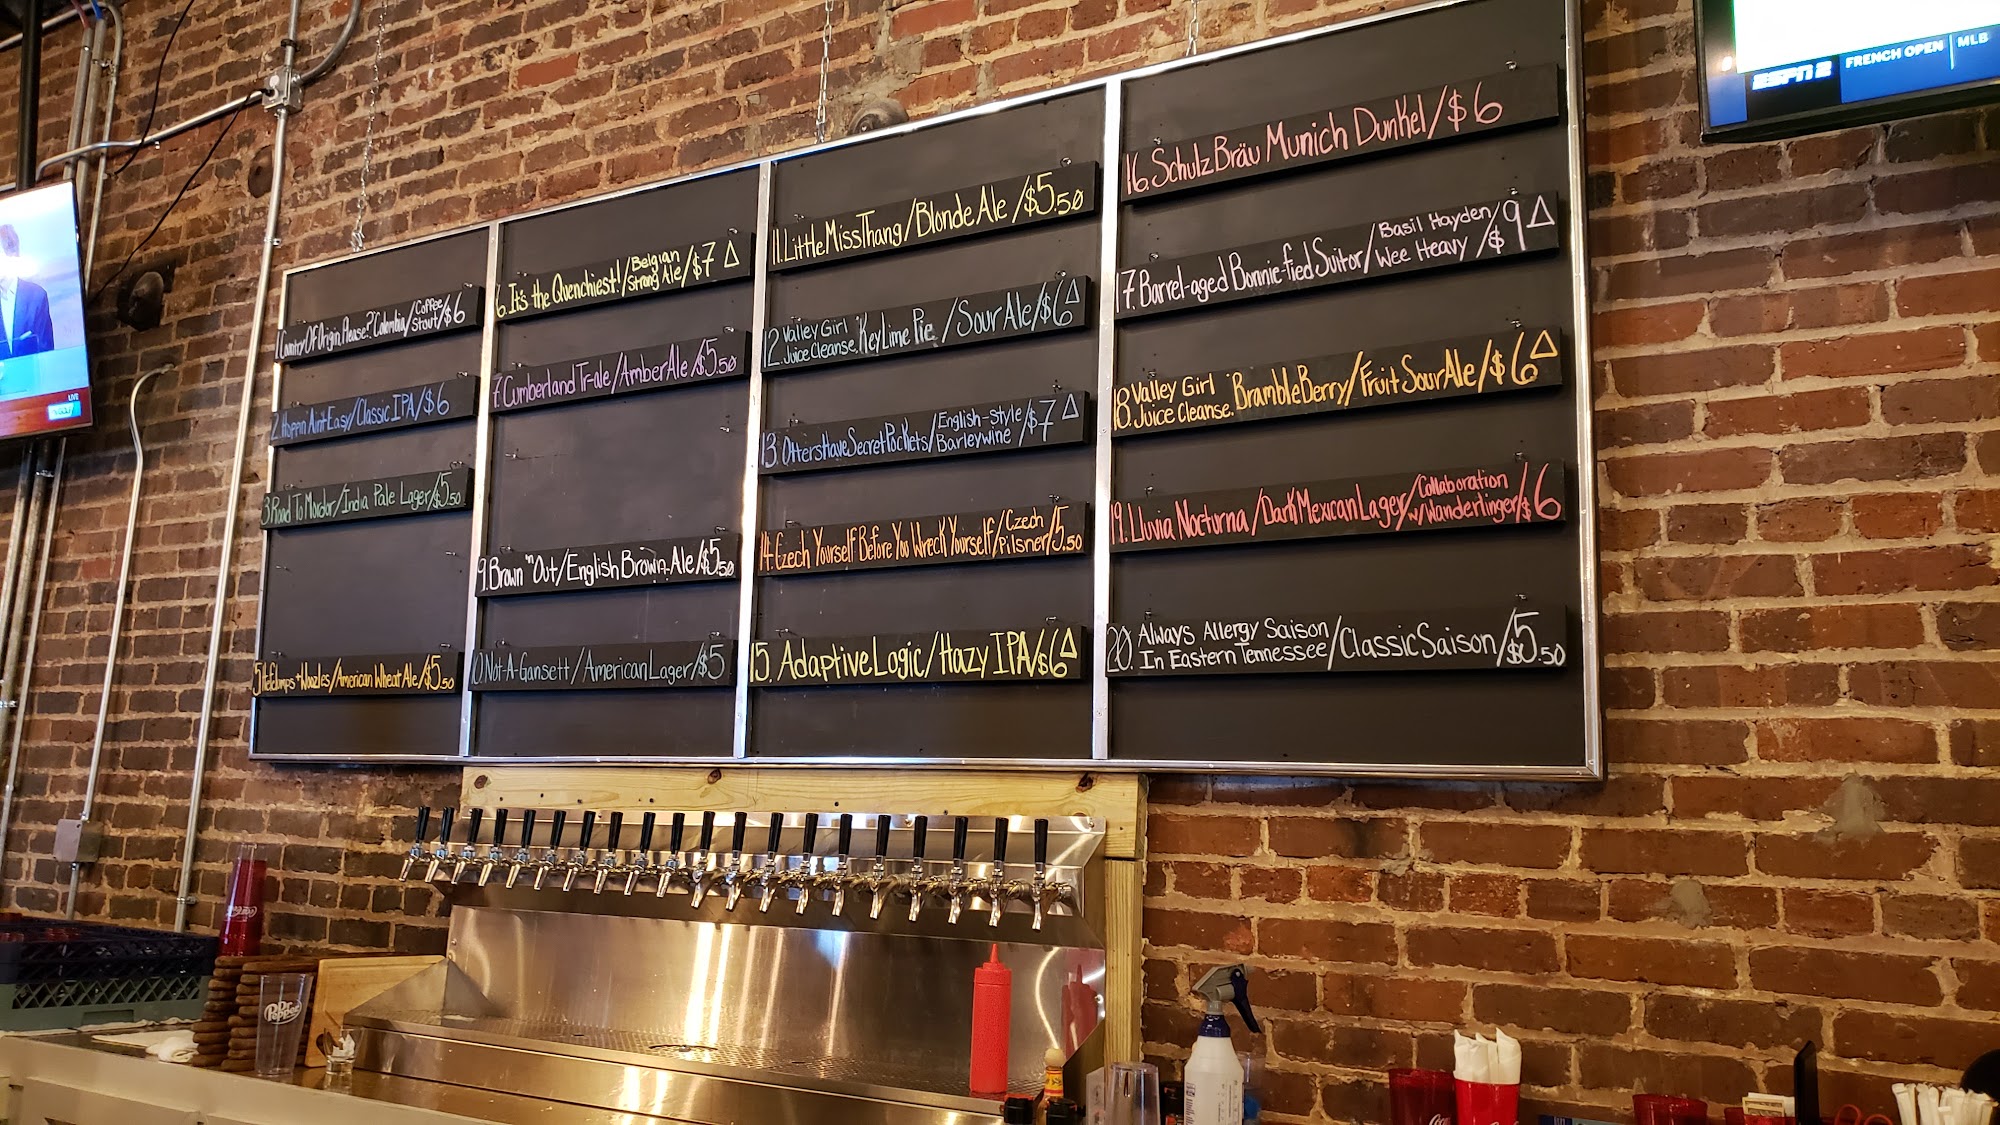 1. Country Of Origin, Please? Colombia/Coffee Stout/$6
2. Hoppin Ain't Easy/Classic IPA/$6
3. Road To Mordor/India Pale Lager/$5.50
5. Hefelumps + Woozles/American Wheat Ale/$5.50
6. It's the Quenchiest!/Belgian Strong Ale/$7 △
7. Cumberland Tr-ale/Amber Ale/$5.50
9. Brown "Out/English Brown Ale/$5.50
10. Not-A-Gansett/American Lager/$5
11. Little Miss Thang/Blonde Ale/$5.50
12. Valley Girl Juice Cleanse. Key Lime Pie/Sour Ale/$6 △
13. Otters Have Secret Pockets/English-style Barleywine/$7 △
14. Czech Yourself Before You Wreck Yourself/Czech Pilsner/5.50
15. Adaptive Logic/Hazy IPA/$6 △
16. Schulz Bräu Munich Dunkel/$6
17. Barrel-aged Bonnie-fied Suitor/Basil Hayden Wee Heavy/$9 △
18. Valley Girl Juice Cleanse. Bramble Berry/Fruit Sour Ale/$6 △
19. Lluvia Nocturna/Dark Mexican Lager/Collaboration w/Wanderlinger/$6
20. Always Allergy Saison In Eastern Tennessee/Classic Saison/$5.50
ESPN 2
FRENCH OPEN
MLB
LIVE
Dr Pepper